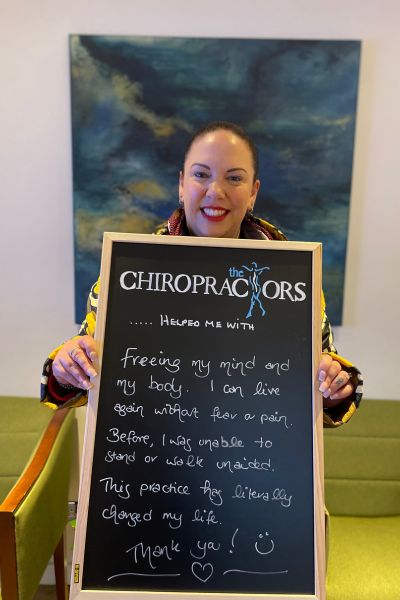 the
CHIROPRACTORS
..... HELPED ME WITH
Freeing my mind and
my body. I can live
again without fear a pain.
Before, I was unable to
stand or walk unaided.
This practice has literally
changed my life.
Thank ya! :)
♡